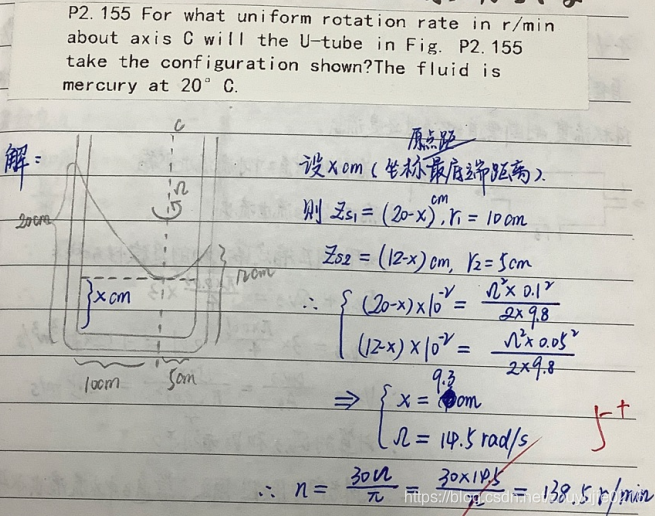 P2.155 For what uniform rotation rate in r/min
about axis C will the U-tube in Fig. P2.155
take the configuration shown?The fluid is
mercury at 20° C.
解:
C
Ω
20cm
12cm
xcm
10cm
5cm
原点距
设 x cm (坐标最底端距离).
则 Zs1 = (20-x)cm, r1 = 10cm
Zs2 = (12-x)cm, r2 = 5cm
∴ { (20-x)×10⁻² = Ω²×0.1² / 2×9.8
(12-x)×10⁻² = Ω²×0.05² / 2×9.8
⇒ { x = 9.3 cm
Ω = 14.5 rad/s
∴ n = 30Ω/π = 30×14.5/π = 138.5 r/min
5+